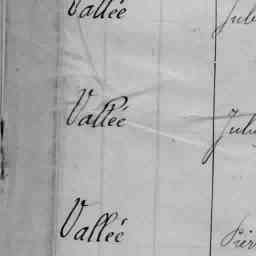 Vallée Jul
Vallée Juli
Vallée Pier